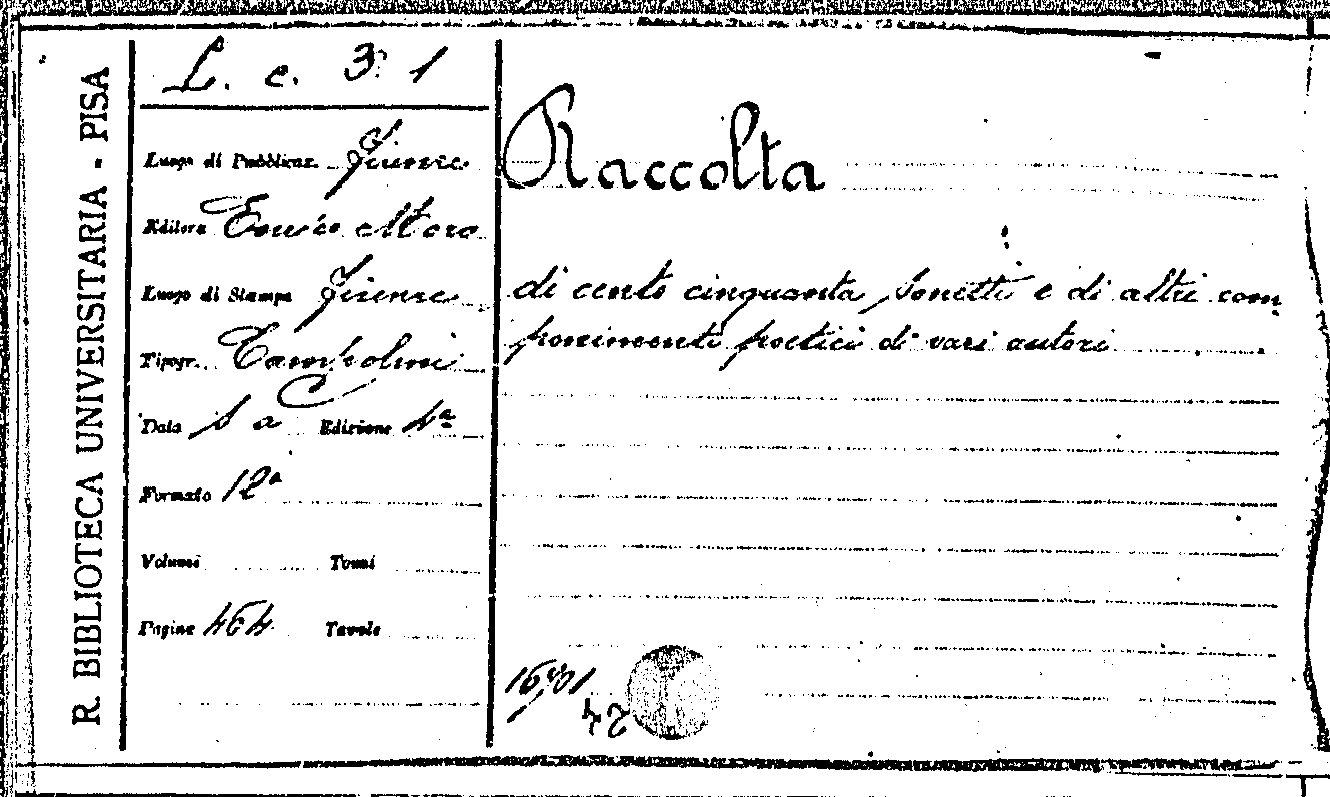 R. BIBLIOTECA UNIVERSITARIA - PISA
L. c. 3. 1
Luogo di Pubblicaz. Firenze
Editore
Luogo di Stampa Firenze
Tipogr.
Data s a Edizione 1ª
Formato 12º
Volumi Tomi
Pagine 464 Tavole
Raccolta
di cento cinquanta sonetti e di altri com
ponimenti poetici di vari autori